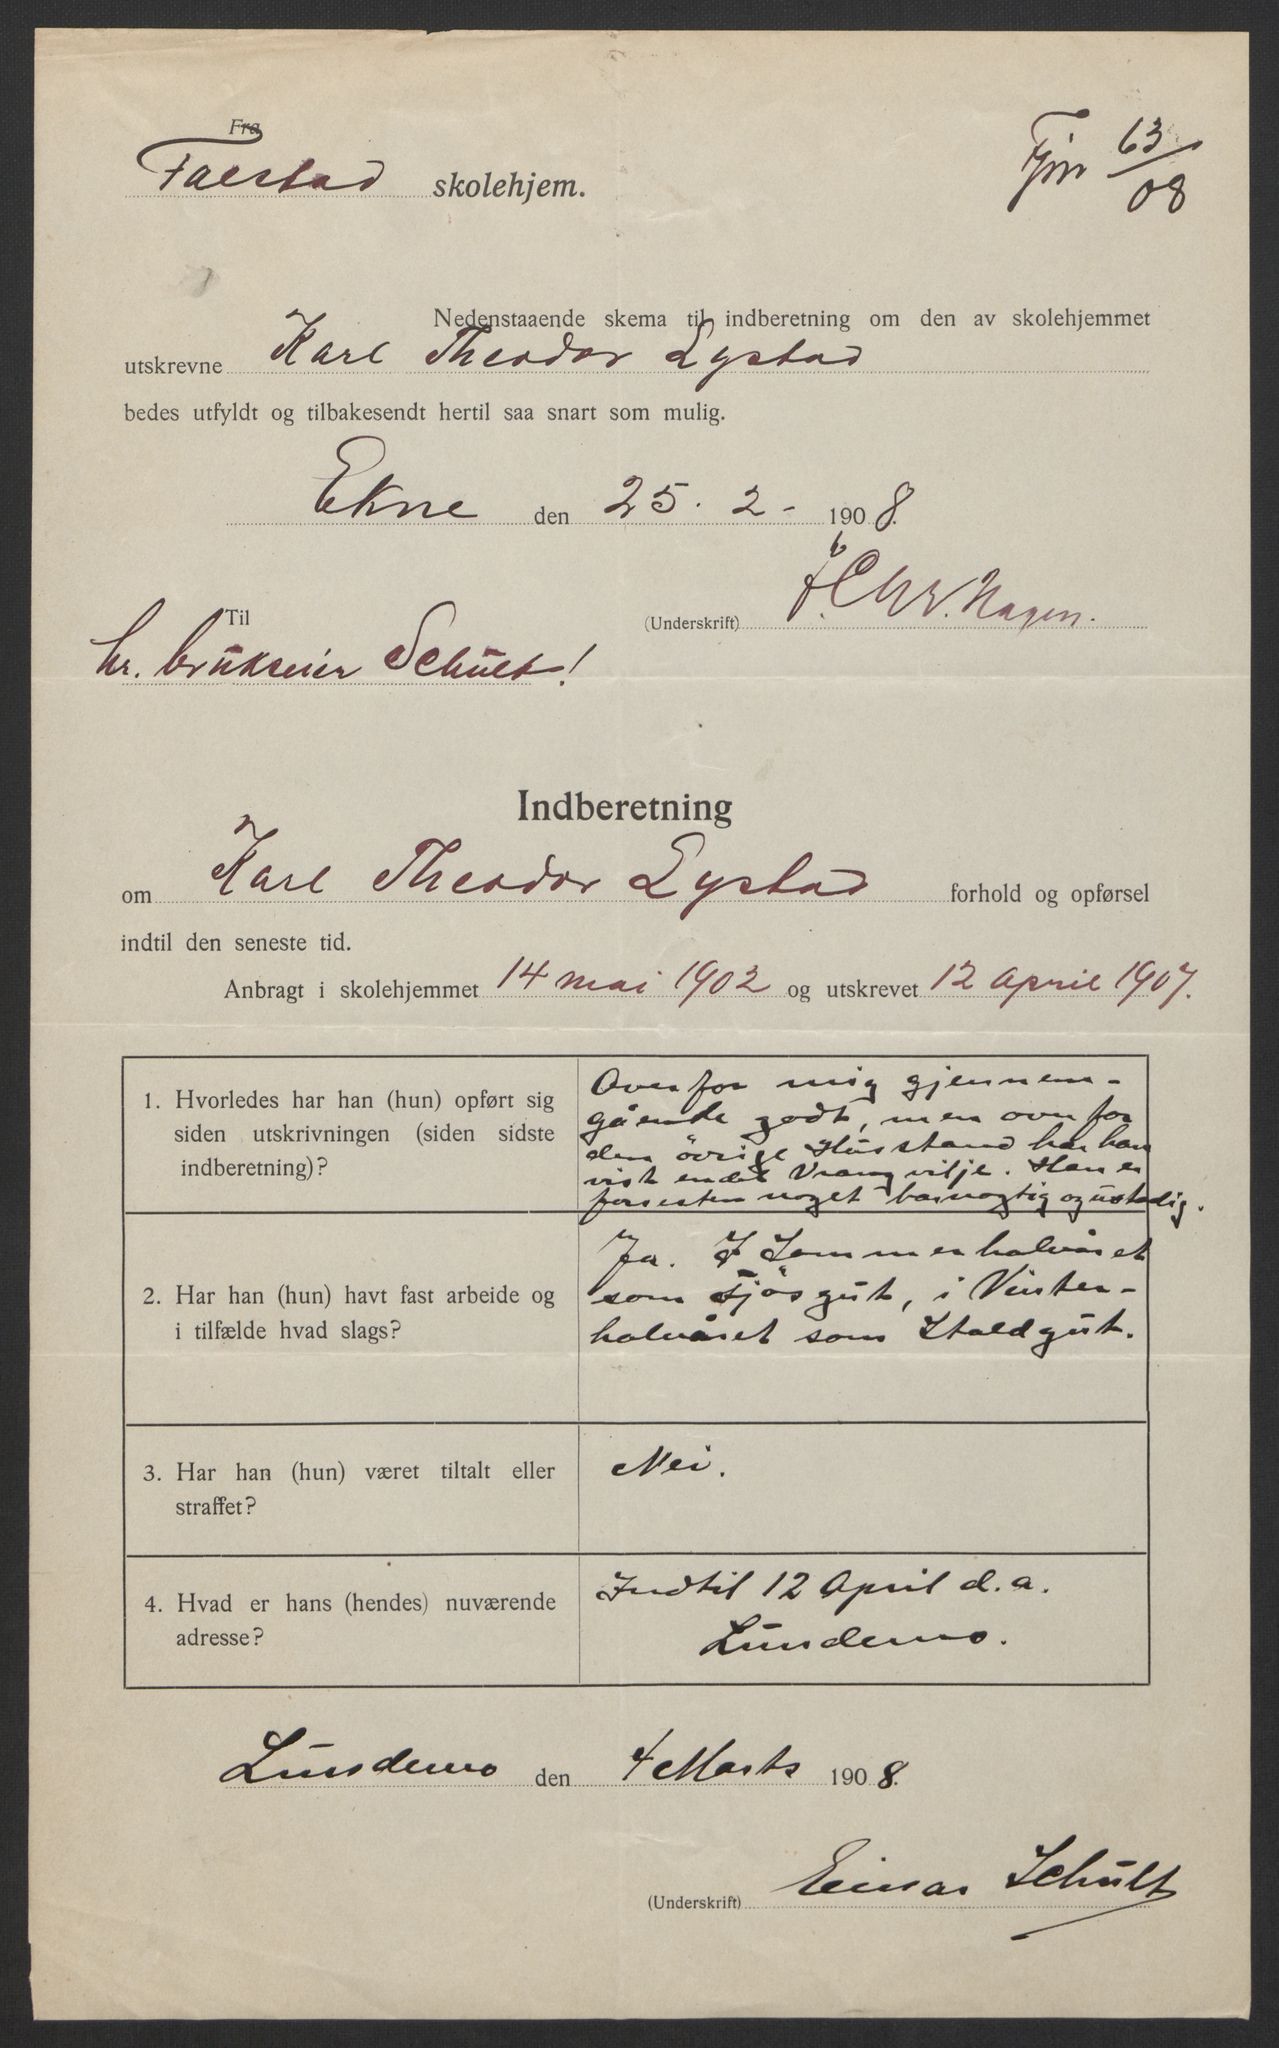 Fra
Falstad skolehjem.
63/08
Nedenstaaende skema til indberetning om den av skolehjemmet
utskrevne Karl Theodor Lystad
bedes utfyldt og tilbakesendt hertil saa snart som mulig.
Ekne den 25. 2 - 1908.
(Underskrift) Chr. Hagen.
Til
hr. brukseier Schult!
Indberetning
om Karl Theodor Lystad forhold og opførsel
indtil den seneste tid.
Anbragt i skolehjemmet 14 mai 1902 og utskrevet 12 april 1907.
1. Hvorledes har han (hun) opført sig
siden utskrivningen (siden sidste
indberetning)?
Overfor mig gjennem-
gående godt, men overfor
den övrige Husstand har han
vist endel Vrangvilje. Han er
forresten noget barnagtig og ustadig.
2. Har han (hun) havt fast arbeide og
i tilfælde hvad slags?
Ja. I Sommerhalvåret
som Fjösgut, i Vinter-
halvåret som Staldgut.
3. Har han (hun) været tiltalt eller
straffet?
Nei.
4. Hvad er hans (hendes) nuværende
adresse?
Indtil 12 April d.a.
Lundemo.
Lundemo den 4 Marts 1908.
(Underskrift) Einar Schult